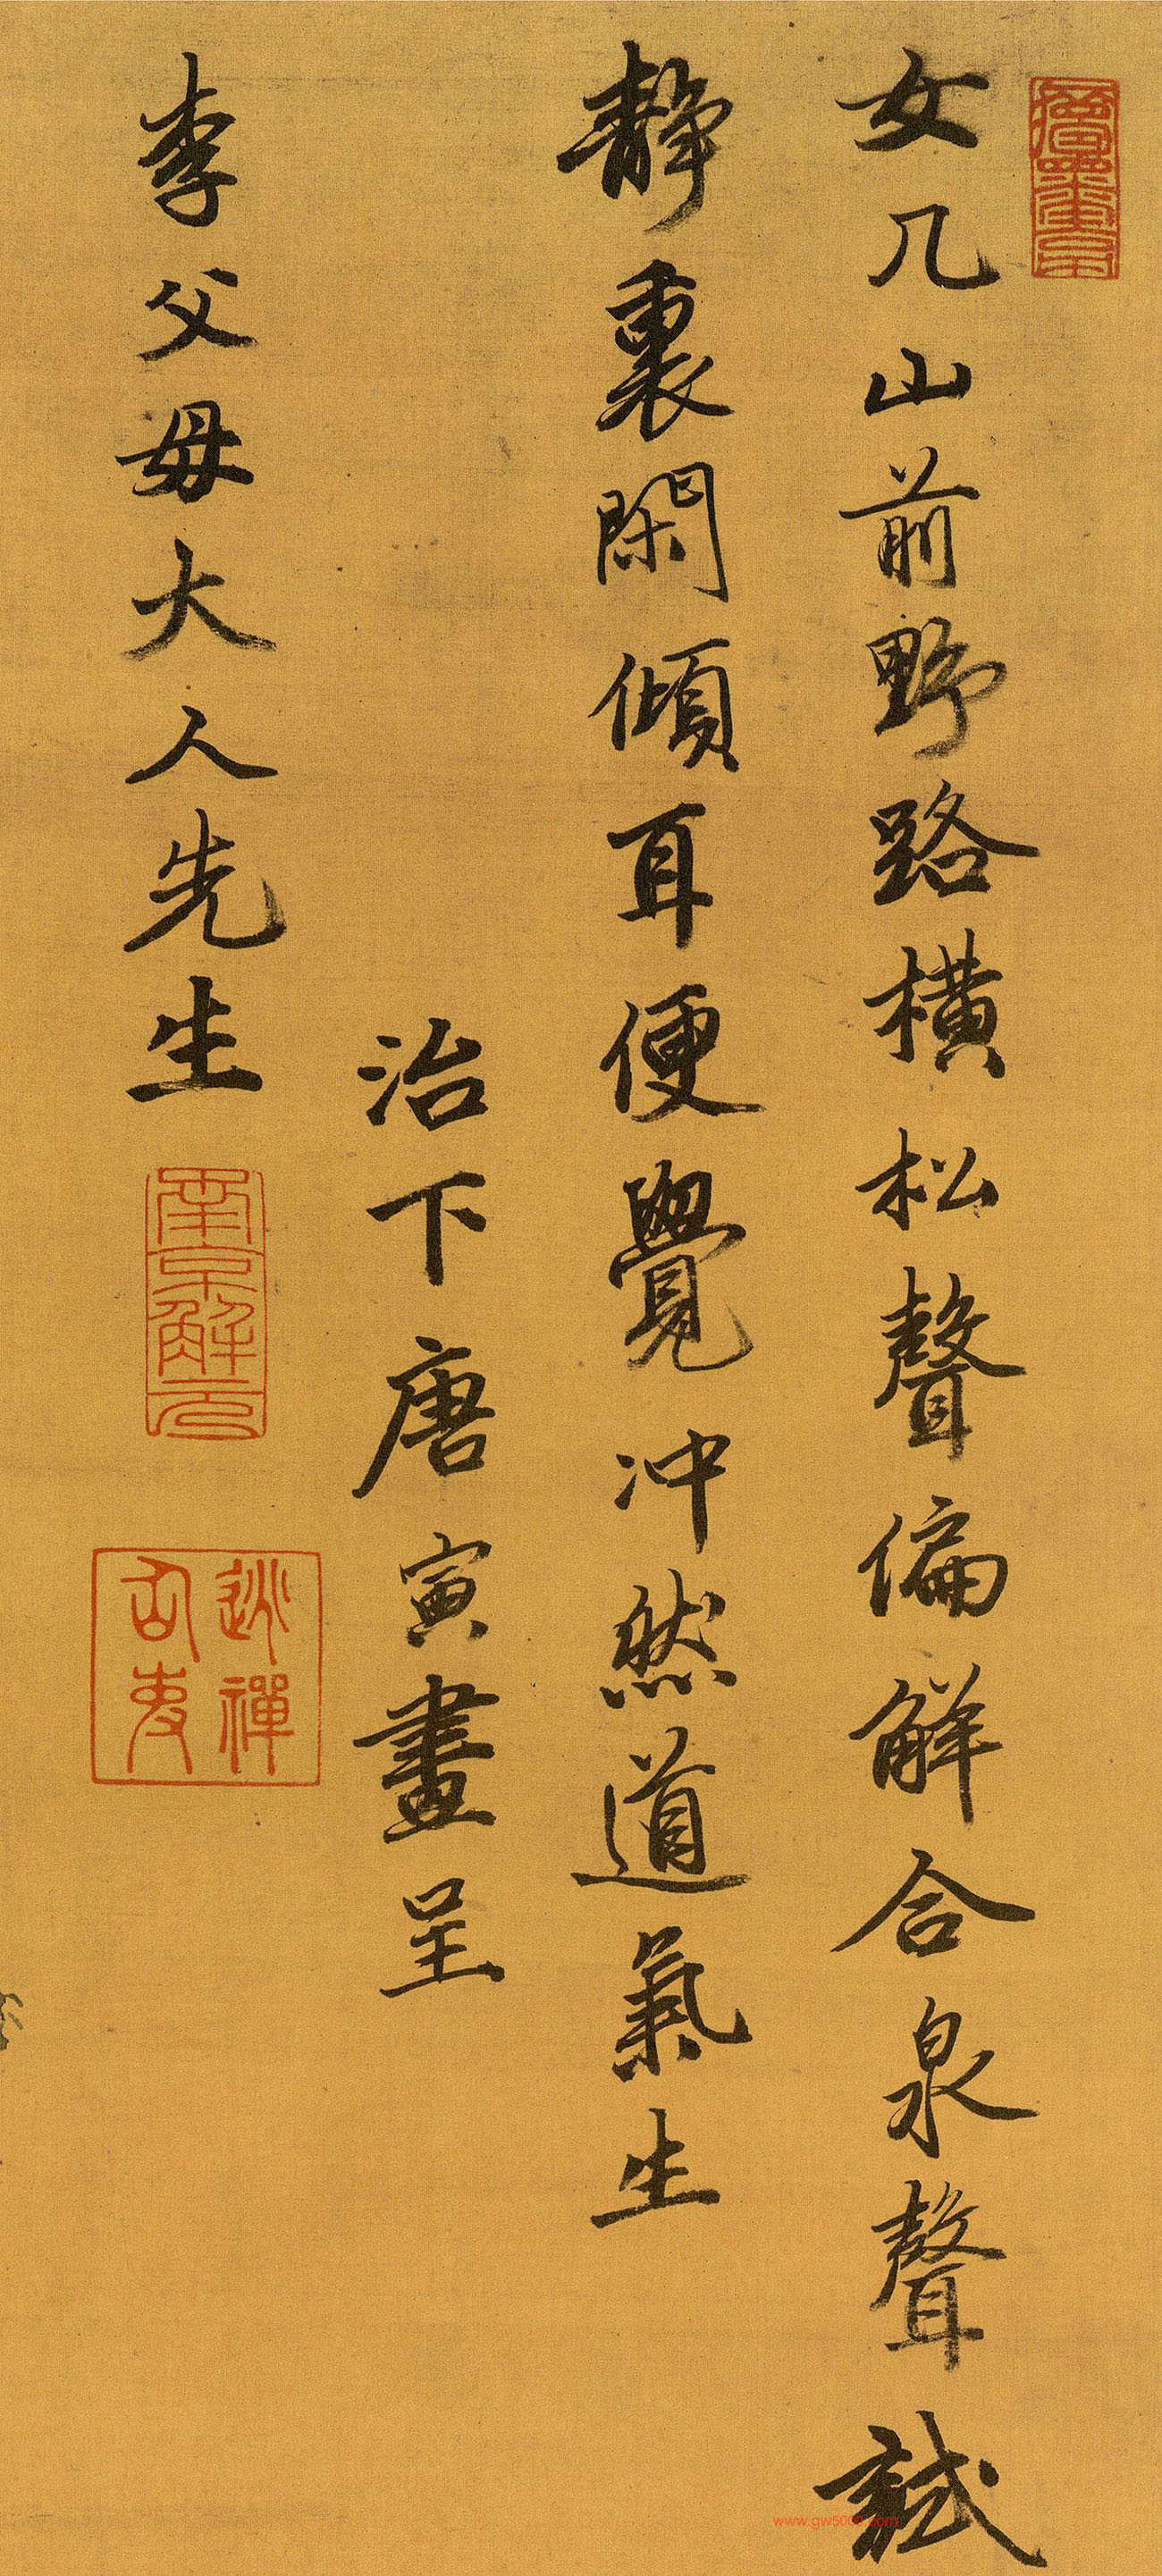 女几山前野路橫松聲偏解合泉聲試
靜裏閑傾耳便覺冲然道氣生
治下唐寅畫呈
李父母大人先生
南京解元
逃禪仙吏
www.gw5000.com